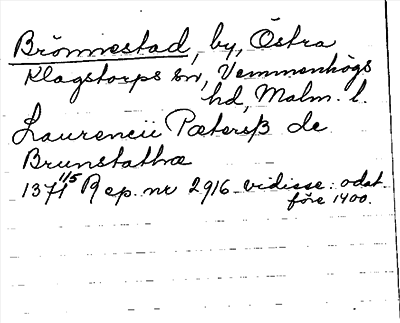 Brönnestad, by, Östra
Klagstorps sn, Vemmenhögs
hd, Malm. l.
Laurencii Pætersß de
Brunstathæ
1371 1/5 Rep. nr 2916 vidisse: odat.
före 1400.